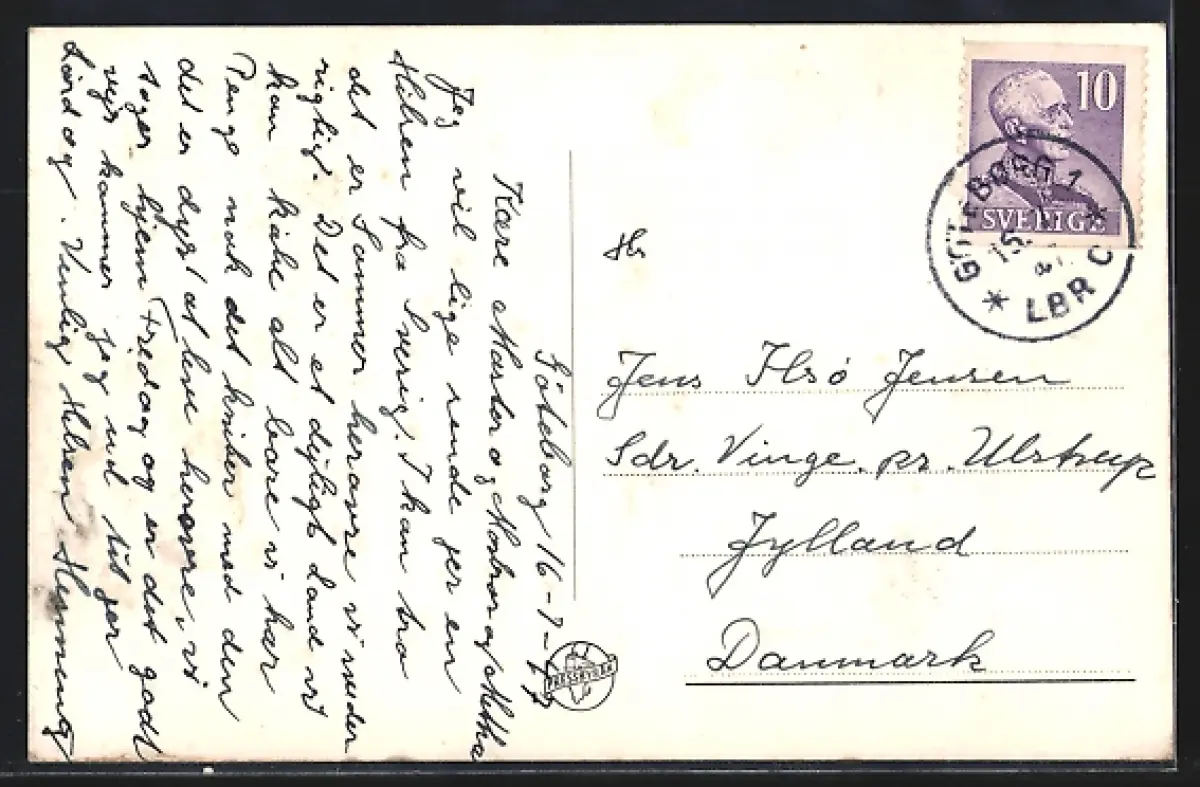 Göteborg 16-7-47
Kære Moster og Morbror og Metha
Jeg vil lige sende jer en
Hilsen fra Sverig. I kan tro
det er Sommer herovre vi sveder
rigtigt. Det er et dejligt Land vi
kan købe alt bare vi har
Penge nok det kniber med den
det er dyrt at leve herovre, vi
tager hjem Fredag og er det godt
vejr kommer jeg ud til jer
Lørdag. Venlig Hilsen Henning
10
SVERIGE
GÖTEBORG 1
LBR C
Hr
Jens Ilsø Jensen
Sdr. Vinge. pr. Ulstrup
Jylland
Danmark
PRESSBYRÅN